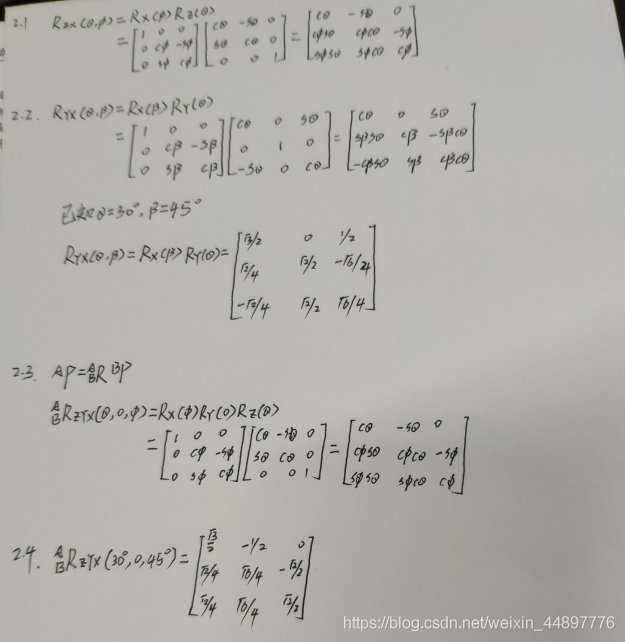 2.1 Rzx(θ,φ)=Rx(φ)Rz(θ)
= [1 0 0; 0 cφ -sφ; 0 sφ cφ] [cθ -sθ 0; sθ cθ 0; 0 0 1] = [cθ -sθ 0; cφsθ cφcθ -sφ; sφsθ sφcθ cφ]
2.2. RYX(θ,β)=Rx(β)RY(θ)
= [1 0 0; 0 cβ -sβ; 0 sβ cβ] [cθ 0 sθ; 0 1 0; -sθ 0 cθ] = [cθ 0 sθ; sβsθ cβ -sβcθ; -cβsθ sβ cβcθ]
已知θ=30°,β=45°
RYX(θ,β)=Rx(β)RY(θ)= [√3/2 0 1/2; √2/4 √2/2 -√6/4; -√2/4 √2/2 √6/4]
2.3. ᴬP=ᴬ_BR ᴮP
ᴬ_BRZYX(θ,0,φ)=Rx(φ)RY(0)Rz(θ)
= [1 0 0; 0 cφ -sφ; 0 sφ cφ] [cθ -sθ 0; sθ cθ 0; 0 0 1] = [cθ -sθ 0; cφsθ cφcθ -sφ; sφsθ sφcθ cφ]
2.4. ᴬ_BRZYX(30°,0,45°)= [√3/2 -1/2 0; √2/4 √6/4 -√2/2; √2/4 √6/4 √2/2]
https://blog.csdn.net/weixin_44897776